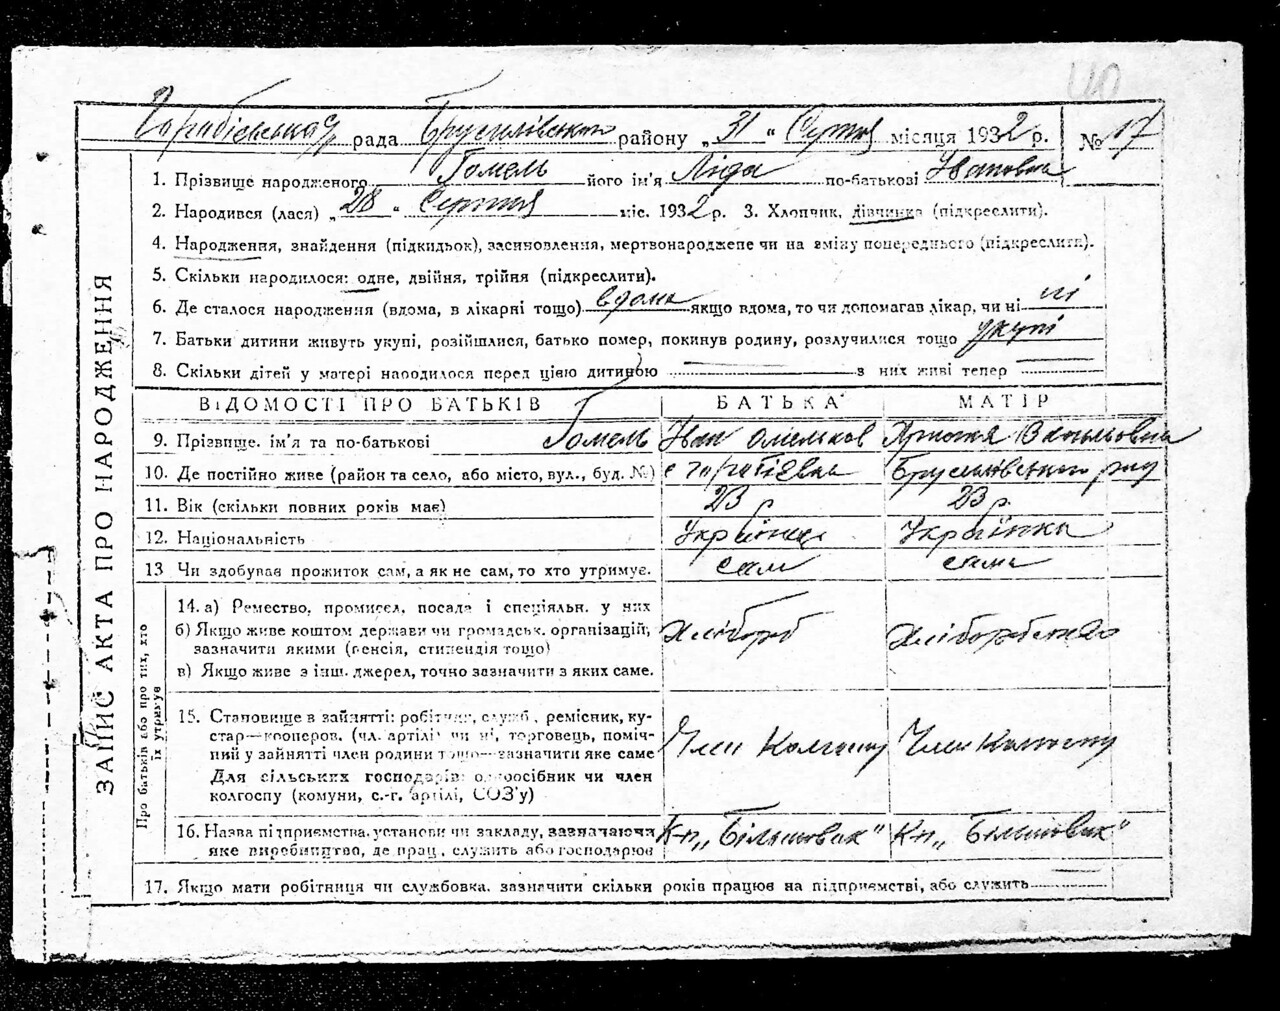 рада Брусилівського району „31“ Серпня місяця 1932 р. № 17
ЗАПИС АКТА ПРО НАРОДЖЕННЯ
1. Прізвище народженого Гомель його ім'я Ліда по-батькові Івановна
2. Народився (лася) „28“ Серпня міс. 1932 р. 3. Хлопчик, дівчинка (підкреслити).
4. Народження, знайдення (підкидьок), засиновлення, мертвонароджене чи на зміну попереднього (підкреслити).
5. Скільки народилося: одне, двійня, трійня (підкреслити).
6. Де сталося народження (вдома, в лікарні тощо) вдома якщо вдома, то чи допомагав лікар, чи ні ні
7. Батьки дитини живуть укупі, розійшлися, батько помер, покинув родину, розлучилися тощо укупі
8. Скільки дітей у матері народилося перед цією дитиною з них живі тепер
ВІДОМОСТІ ПРО БАТЬКІВ БАТЬКА МАТІР
9. Прізвище, ім'я та по-батькові Гомель Іван Омельков Васильовна
10. Де постійно живе (район та село, або місто, вул., буд. №) с Брусилівського рну
11. Вік (скільки повних років має) 23 р 23 р.
12. Національність Українец Українка
13 Чи здобуває прожиток сам, а як не сам, то хто утримує. сам сама
Про батьків або про тих, хто їх утримує
14. а) Ремество, промисел, посада і спеціяльн. у них
б) Якщо живе коштом держави чи громадськ. організацій, зазначити якими (пенсія, стипендія тощо)
в) Якщо живе з інш. джерел, точно зазначити з яких саме.
Хлібороб
15. Становище в зайнятті: робітник, служб., ремісник, ку-
стар—кооперов. (чл. артілі чи ні, торговець, поміч-
ний у зайнятті член родини тощо—зазначити яке саме
Для сільських господарів: одноосібник чи член
колгоспу (комуни, с.-г. артілі, СОЗ'у)
Член Колгоспу Член Колгоспу
16. Назва підприємства, установи чи закладу, зазначаючи
яке виробництво, де прац., служить або господарює
К-п „Більшовик“ К-п „Більшовик“
17. Якщо мати робітниця чи службовка, зазначити скільки років працює на підприємстві, або служить